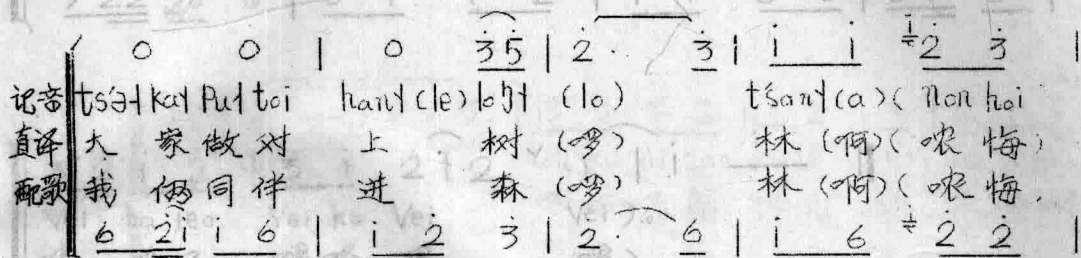 0 0 | 0 3̇5̇ | 2̇· 3̇ | i i 2̇ 3̇ |
记音 tsə˧ ka˧ pu˧ toi han˧ (le) loŋ˧ (lo) tsam˧ (a) ( non hoi
直译 大 家 做 对 上 树 (啰) 林 (啊) ( 哝 悔 )
配歌 我 俩 同 伴 进 森 (啰) 林 (啊) ( 哝 悔
6 2̇i i 6 | i 2̇ 3̇ | 2̇· 6 | i 6 2̇ 2̇ |